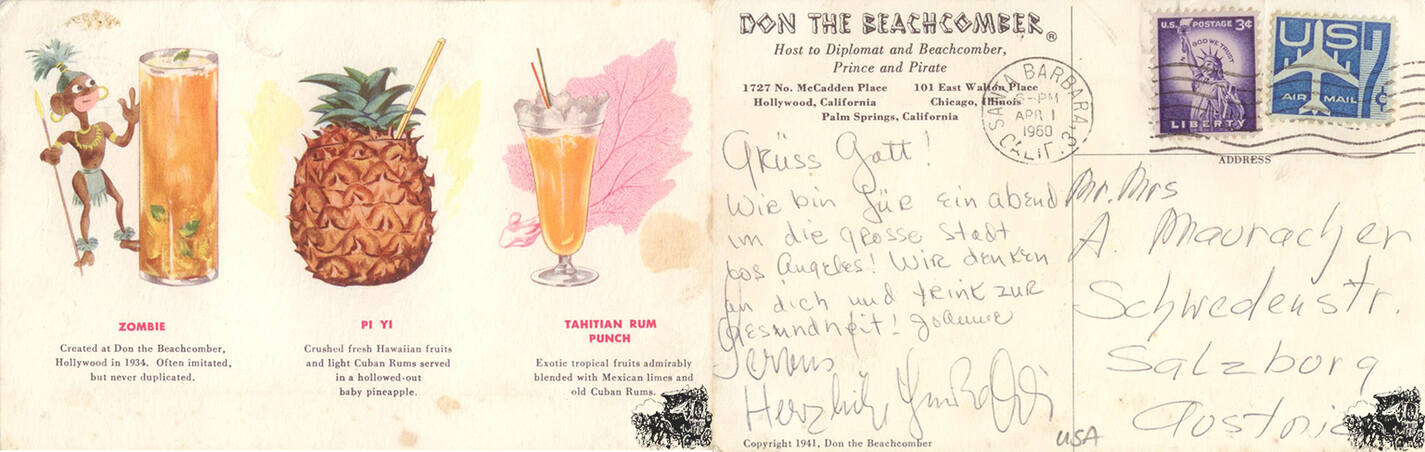 ZOMBIE
Created at Don the Beachcomber,
Hollywood in 1934. Often imitated,
but never duplicated.
PI YI
Crushed fresh Hawaiian fruits
and light Cuban Rums served
in a hollowed-out
baby pineapple.
TAHITIAN RUM
PUNCH
Exotic tropical fruits admirably
blended with Mexican limes and
old Cuban Rums.
DON THE BEACHCOMBER®
Host to Diplomat and Beachcomber,
Prince and Pirate
1727 No. McCadden Place
Hollywood, California
101 East Walton Place
Chicago, Illinois
Palm Springs, California
SANTA BARBARA, 3
CALIF.
6-PM
APR 1
1960
U.S. POSTAGE 3¢
IN GOD WE TRUST
LIBERTY
US
AIR MAIL
7¢
Grüss Gott!
Wir bin für ein abend
im die grosse Stadt
Los Angeles! Wir denken
an dich und trink zur
Gesundheit! Johnnie
Servus
Herzlich
Copyright 1941, Don the Beachcomber
ADDRESS
Mr. Mrs
A. Mauracher
Schwedenstr.
Salzburg
Austria
USA